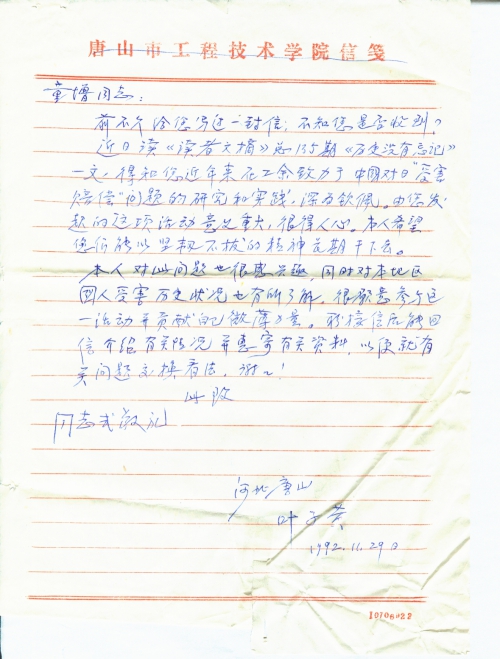 唐山市工程技术学院信笺
童增同志：
前不久给您写过一封信，不知您是否收到？
近日读《读者文摘》总135期《历史没有忘记》
一文，得知您近年来在工余致力于中国对日“受害
赔偿”问题的研究和实践，深为钦佩。由您发
起的这项活动意义重大，很得人心。本人希望
您们能以坚韧不拔的精神长期干下去。
本人对此问题也很感兴趣，同时对本地区
国人受害历史状况也有所了解，很愿意参与这
一活动并贡献自己微薄力量。盼接信后能回
信介绍有关情况并惠寄有关资料，以便就有
关问题交换看法。谢谢！
此致
同志式敬礼
河北唐山
叶子黄
1992.11.29日
10706022